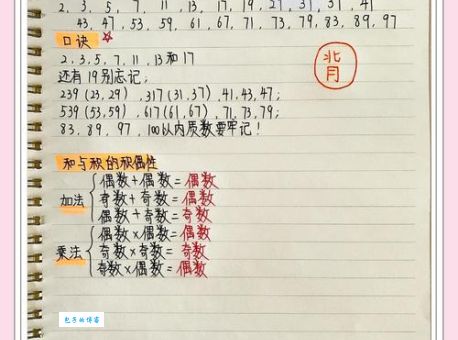 2, 3, 5, 7, 11, 13, 17, 19, 23, 29, 31, 37, 41
43, 47, 53, 59, 61, 67, 71, 73, 79, 83, 89, 97
口诀
2, 3, 5, 7, 11, 13和17
还有19别忘记;
239(23,29), 317(31,37), 41,43,47;
539(53,59), 617(61,67), 71,73,79;
83, 89, 97, 100以内质数要牢记!
背
和与积的积偶性
加法
偶数+偶数=偶数
奇数+奇数=偶数
偶数+奇数=奇数
乘法
偶数×偶数=偶数
奇数×奇数=奇数
奇数×偶数=偶数
包子的博客